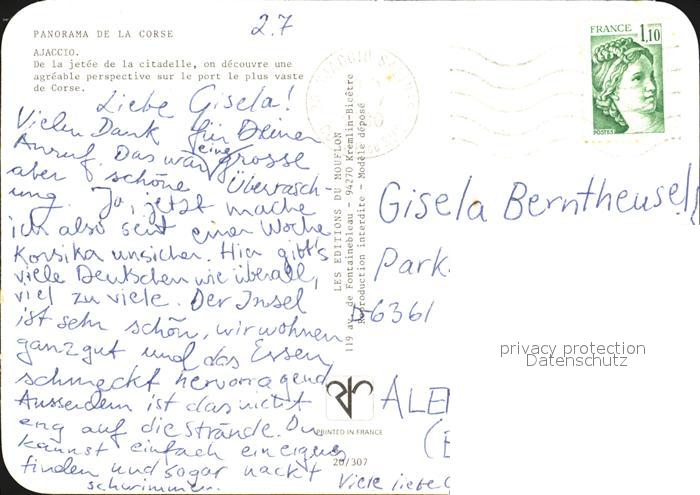 PANORAMA DE LA CORSE
2.7
AJACCIO.
De la jetée de la citadelle, on découvre une
agréable perspective sur le port le plus vaste
de Corse.
Liebe Gisela!
Vielen Dank für Deinen
Anruf. Das war eine grosse
aber schöne Überrasch-
ung. Ja, jetzt mache
ich also seit einer Woche
Korsika unsicher. Hier gibt's
viele Deutschen wie überall,
viel zu viele. Der Insel
ist sehr schön, wir wohnen
ganz gut und das Essen
schmeckt hervorragend
Ausserdem ist das nicht
eng auf die Strände. Du
kannst einfach ein eigenes
finden und sogar nackt
schwimmen.
LES EDITIONS DU MOUFLON
119 av. de Fontainebleau - 94270 Kremlin-Bicêtre
Reproduction interdite - Modèle déposé
PRINTED IN FRANCE
20/307
FRANCE 1,10
POSTES
Gisela Berntheusel
Park
D6361
privacy protection
Datenschutz
ALE
(
Viele liebe